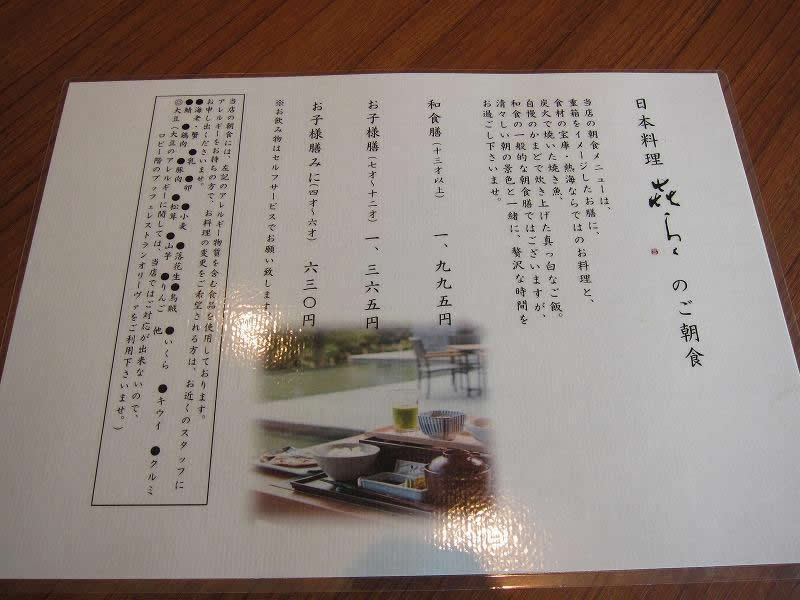 日本料理 㐂らく のご朝食
当店の朝食メニューは、
重箱をイメージしたお膳に、
食材の宝庫・熱海ならではのお料理と、
炭火で焼いた焼き魚、
自慢のかまどで炊き上げた真っ白なご飯。
和食の一般的な朝食膳ではございますが、
清々しい朝の景色と一緒に、贅沢な時間を
お過ごし下さいませ。
和食膳(十三才以上) 一、九九五円
お子様膳(七才〜十二才) 一、三六五円
お子様膳みに(四才〜六才) 六三〇円
※お飲み物はセルフサービスでお願い致します
当店の朝食には、左記のアレルギー物質を含む食品を使用しております。
アレルギーをお持ちの方で、お料理の変更をご希望される方は、お近くのスタッフに
お申し出くださいませ。
●海老・蟹 ●乳 ●卵 ●小麦 ●落花生 ●烏賊 ●いくら ●キウイ ●クルミ
●鯖 ●鶏肉 ●豚肉 ●松茸 ●山芋 ●りんご 他
◎大豆(大豆のアレルギーに関しては、当店ではご対応が出来ないので、
ロビー階のブッフェレストランオリーヴァをご利用下さいませ。)